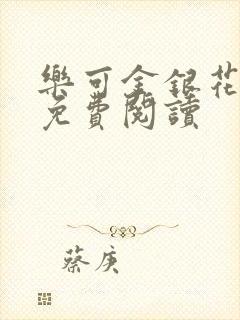 樂可金銀花
免費閱讀
蔡庚